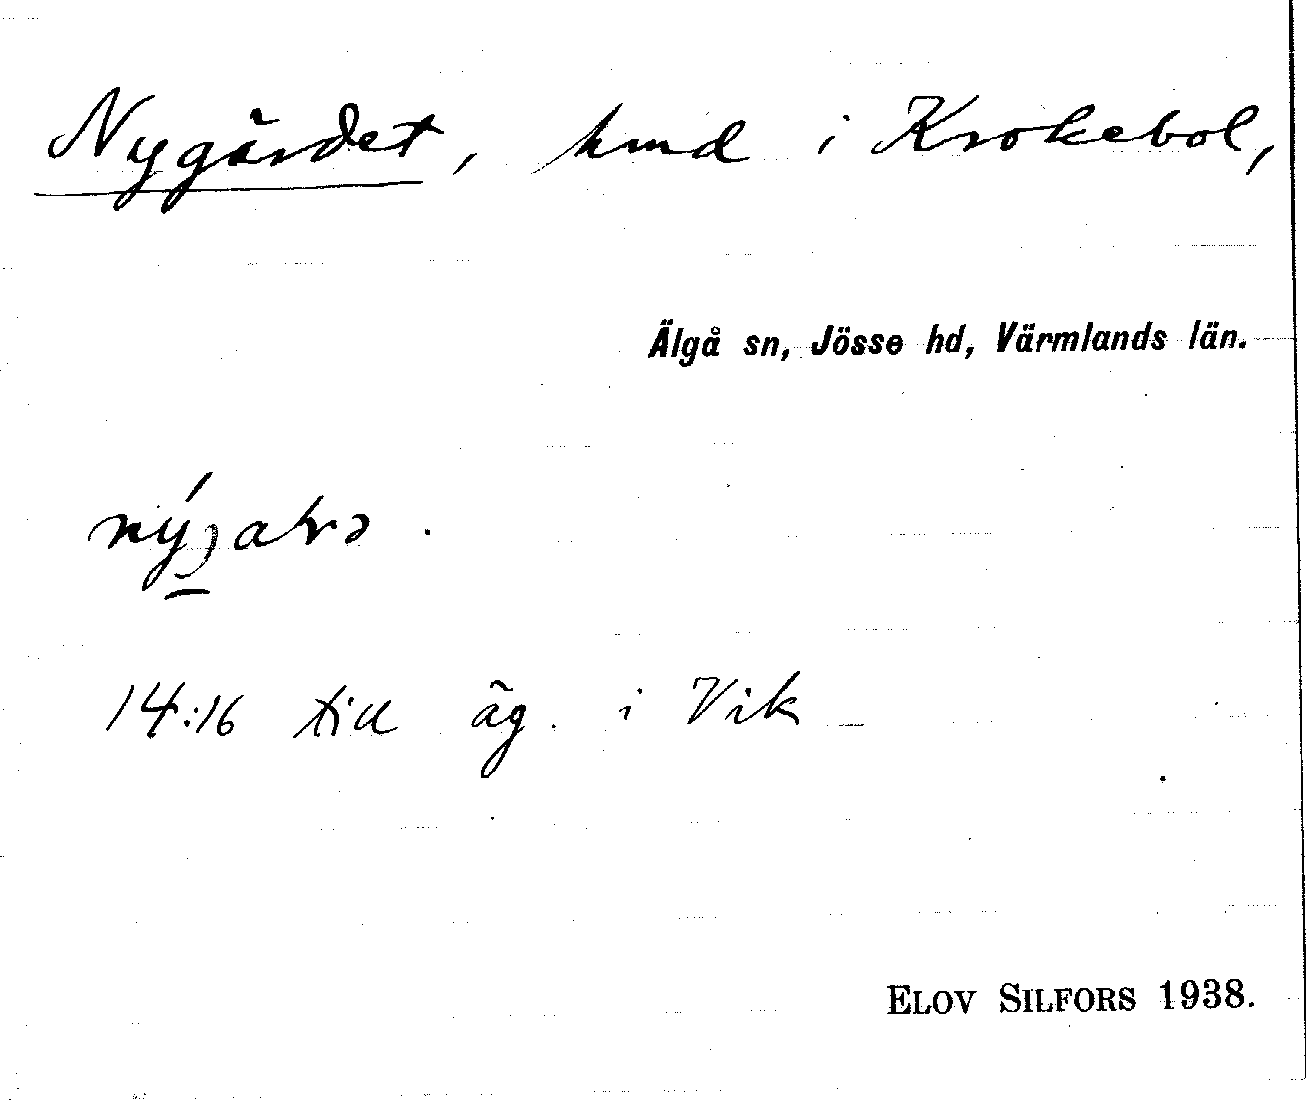 Nygärdet, hmd i Krokebol,
Älgå sn, Jösse hd, Värmlands län.
14:16 till äg. i Vik
ELOV SILFORS 1938.